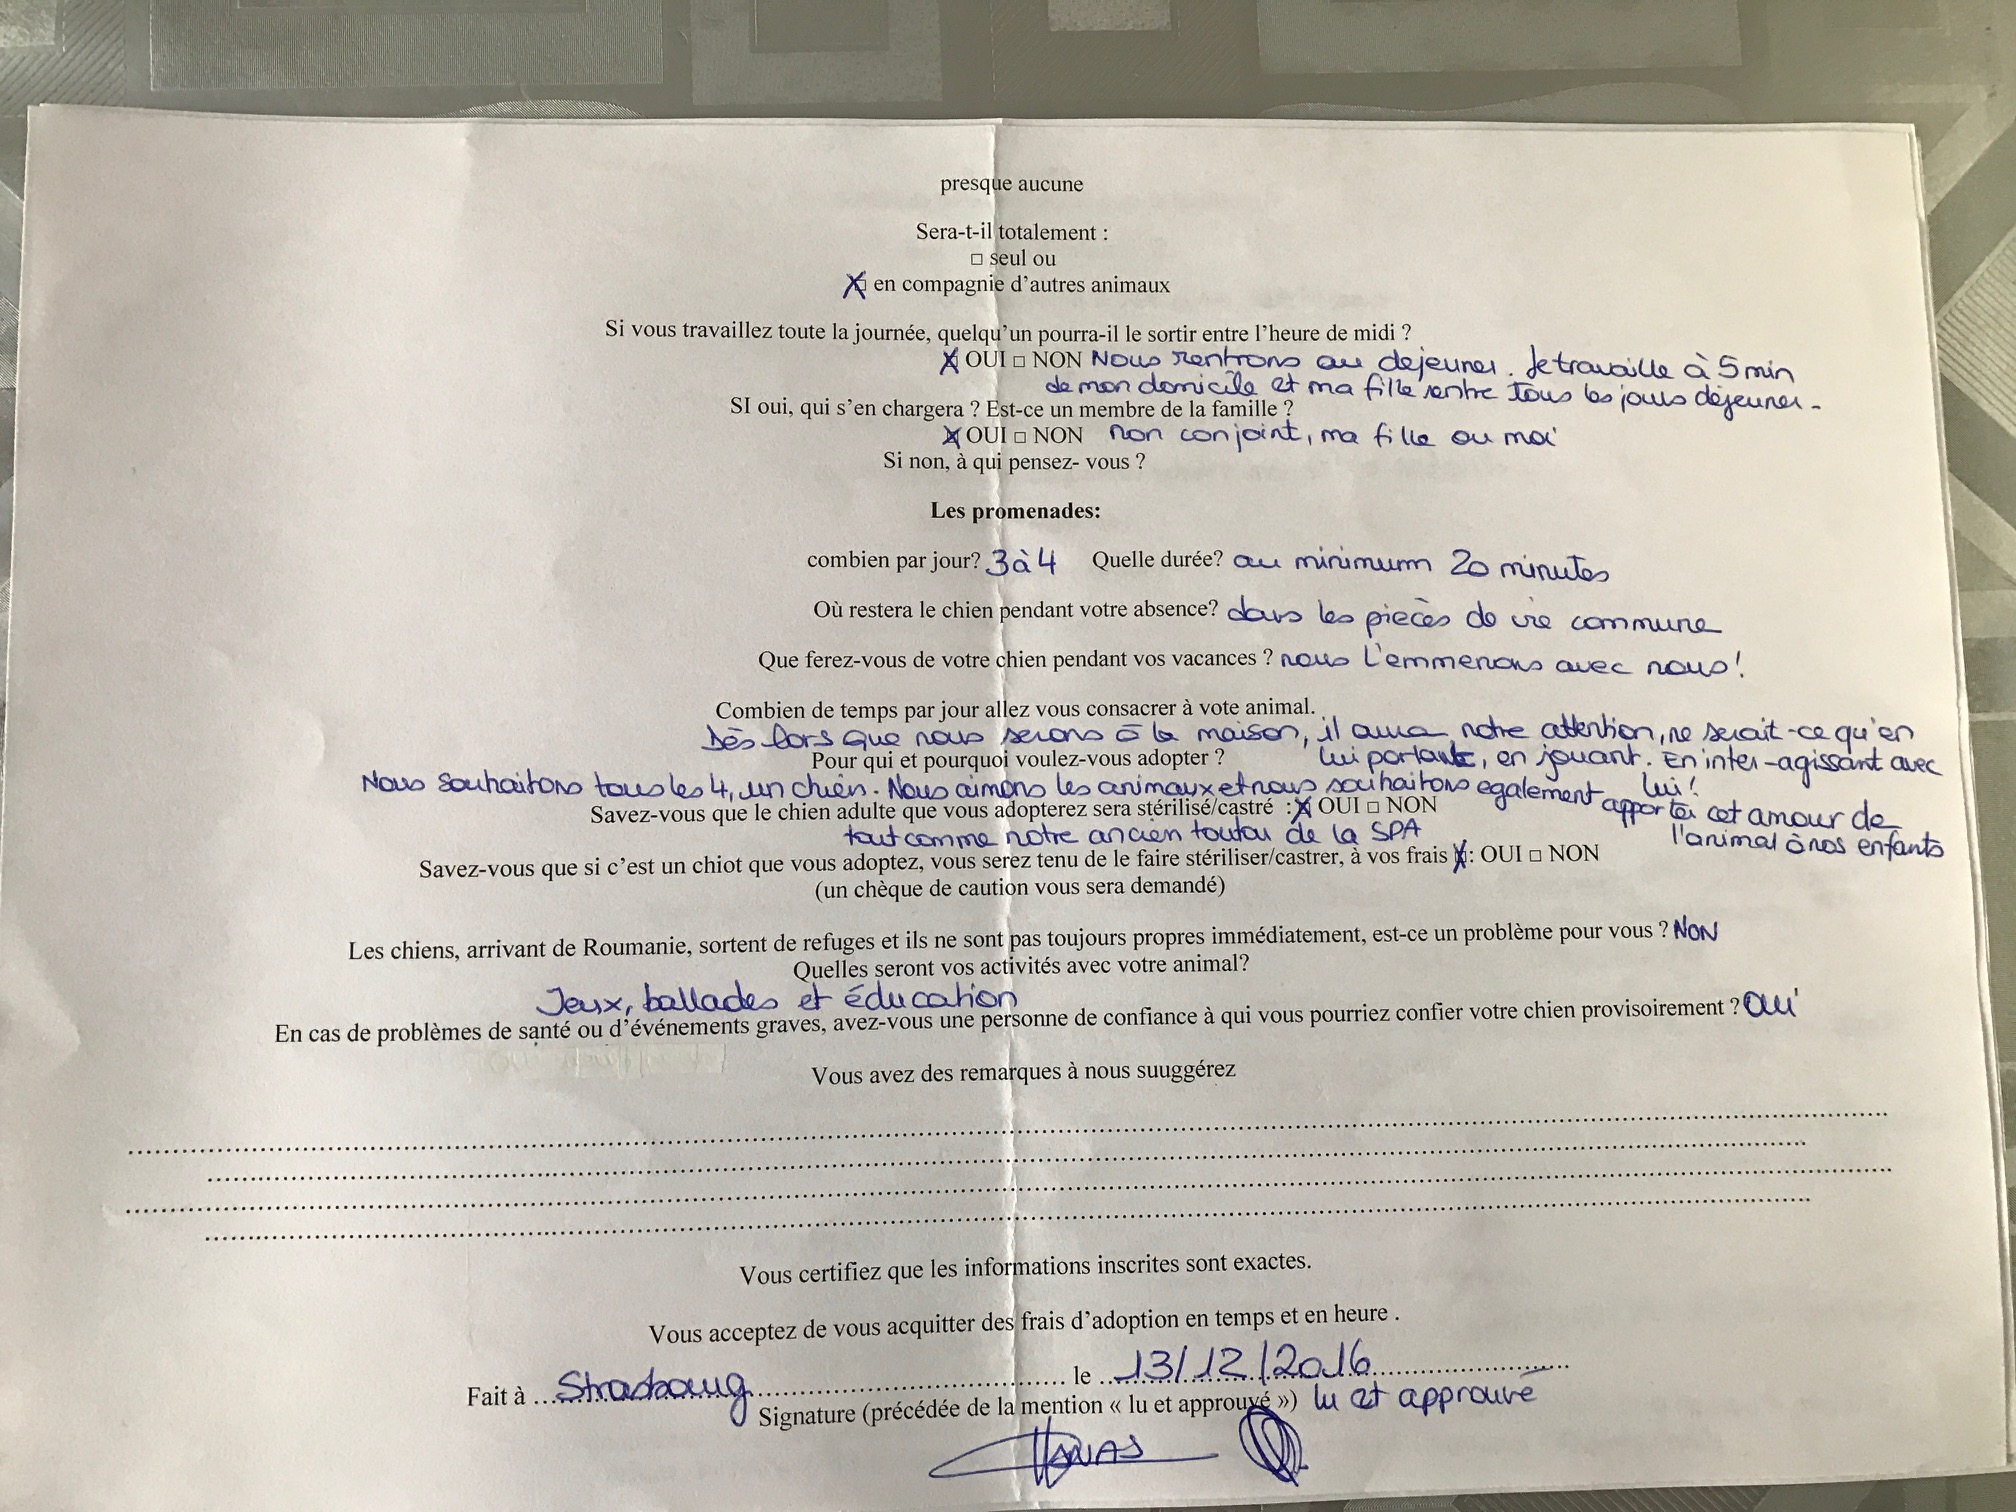 presque aucune
Sera-t-il totalement :
□ seul ou
☒ en compagnie d'autres animaux
Si vous travaillez toute la journée, quelqu'un pourra-il le sortir entre l'heure de midi ?
☒ OUI □ NON Nous rentrons au dejeuner. Je travaille à 5 min
de mon domicile et ma fille rentre tous les jours déjeuner.
SI oui, qui s'en chargera ? Est-ce un membre de la famille ?
☒ OUI □ NON non conjoint, ma fille ou moi
Si non, à qui pensez- vous ?
Les promenades:
combien par jour? 3 à 4 Quelle durée? au minimum 20 minutes
Où restera le chien pendant votre absence? dans les pièces de vie commune
Que ferez-vous de votre chien pendant vos vacances ? nous l'emmenons avec nous!
Combien de temps par jour allez vous consacrer à vote animal.
Dès lors que nous serons à la maison, il aura notre attention, ne serait-ce qu'en
lui parlant, en jouant. En inter-agissant avec
lui!
Pour qui et pourquoi voulez-vous adopter ?
Nous souhaitons tous les 4, un chien. Nous aimons les animaux et nous souhaitons egalement apporter cet amour de
l'animal à nos enfants
Savez-vous que le chien adulte que vous adopterez sera stérilisé/castré : ☒ OUI □ NON
tout comme notre ancien toutou de la SPA
Savez-vous que si c'est un chiot que vous adoptez, vous serez tenu de le faire stériliser/castrer, à vos frais ☒: OUI □ NON
(un chèque de caution vous sera demandé)
Les chiens, arrivant de Roumanie, sortent de refuges et ils ne sont pas toujours propres immédiatement, est-ce un problème pour vous ? NON
Quelles seront vos activités avec votre animal?
Jeux, ballades et éducation
En cas de problèmes de santé ou d'événements graves, avez-vous une personne de confiance à qui vous pourriez confier votre chien provisoirement ? OUI
Vous avez des remarques à nous suuggérez
Vous certifiez que les informations inscrites sont exactes.
Vous acceptez de vous acquitter des frais d'adoption en temps et en heure .
Fait à ...Strasbourg................ le ..13/12/2016................
Signature (précédée de la mention « lu et approuvé ») lu et approuvé